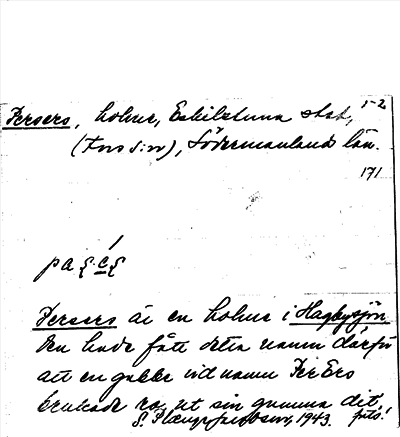 Persers, holme, Eskilstuna stad, 1-2
(Fors s:n), Södermanland län.
171
Persers är en holme i Hagbysjön
den hade fått detta namn därför
att en gubbe vid namn Per Ers
brukade ro ut sin gumma dit.
1943.